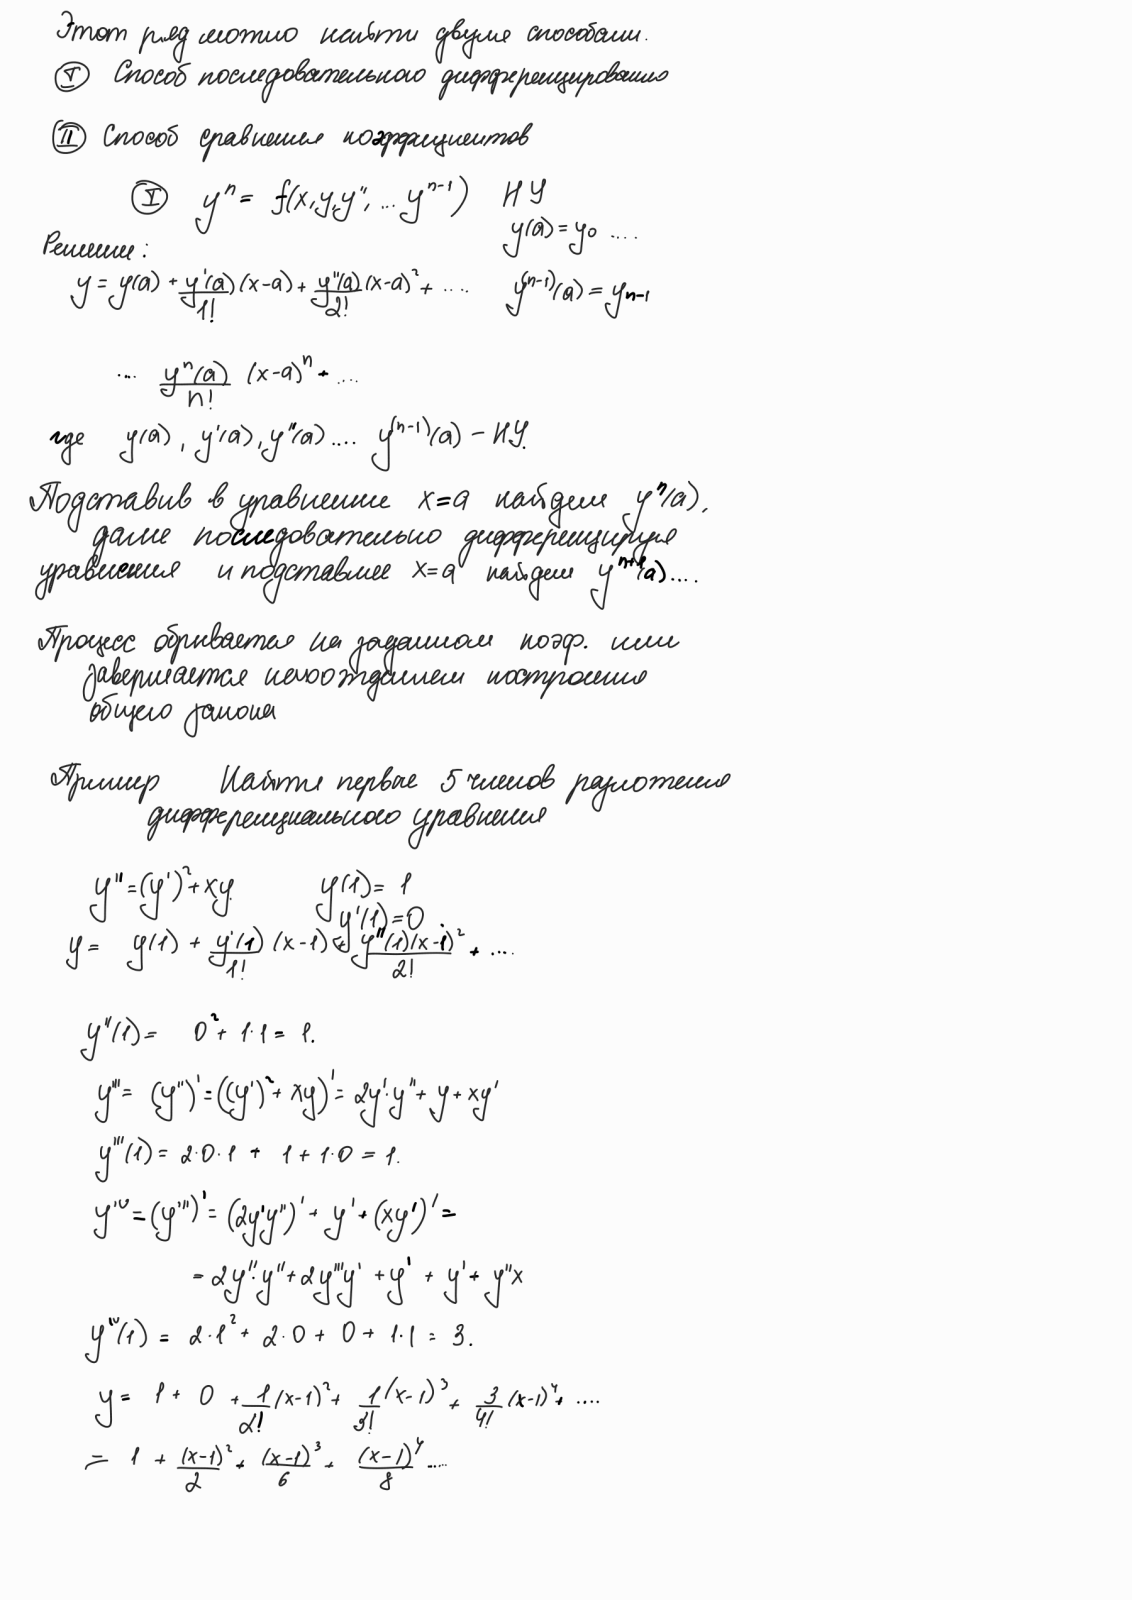 Этот ряд можно найти двумя способами.
I Способ последовательного дифференцирования
II Способ сравнения коэффициентов
I yⁿ = f(x, y, y'', ... yⁿ⁻¹) НУ
y(a) = y₀ ....
Решение:
y = y(a) + y'(a)/1! (x-a) + y''(a)/2! (x-a)² + .... y⁽ⁿ⁻¹⁾(a) = yₙ₋₁
... yⁿ(a)/n! (x-a)ⁿ + ....
где y(a), y'(a), y''(a) .... y⁽ⁿ⁻¹⁾(a) - НУ.
Подставив в уравнение x=a найдем yⁿ(a),
далее последовательно дифференцируя
уравнения и подставляя x=a найдем yⁿ⁺¹(a)....
Процесс обрывается на заданном коэф. или
завершается нахождением построения
общего закона
Пример Найти первые 5 членов разложения
дифференциального уравнения
y'' = (y')² + xy y(1) = 1
y'(1) = 0
y = y(1) + y'(1)/1! (x-1) + y''(1)(x-1)²/2! + ....
y''(1) = 0² + 1·1 = 1.
y''' = (y'')' = ((y')² + xy)' = 2y'·y'' + y + xy'
y'''(1) = 2·0·1 + 1 + 1·0 = 1.
y'ᵛ = (y''')' = (2y'y'')' + y' + (xy')' =
= 2y''·y'' + 2y'''y' + y' + y' + y''x
yᴵⱽ(1) = 2·1² + 2·0 + 0 + 1·1 = 3.
y = 1 + 0 + 1/2! (x-1)² + 1/3! (x-1)³ + 3/4! (x-1)⁴ + ....
= 1 + (x-1)²/2 + (x-1)³/6 + (x-1)⁴/8 ....